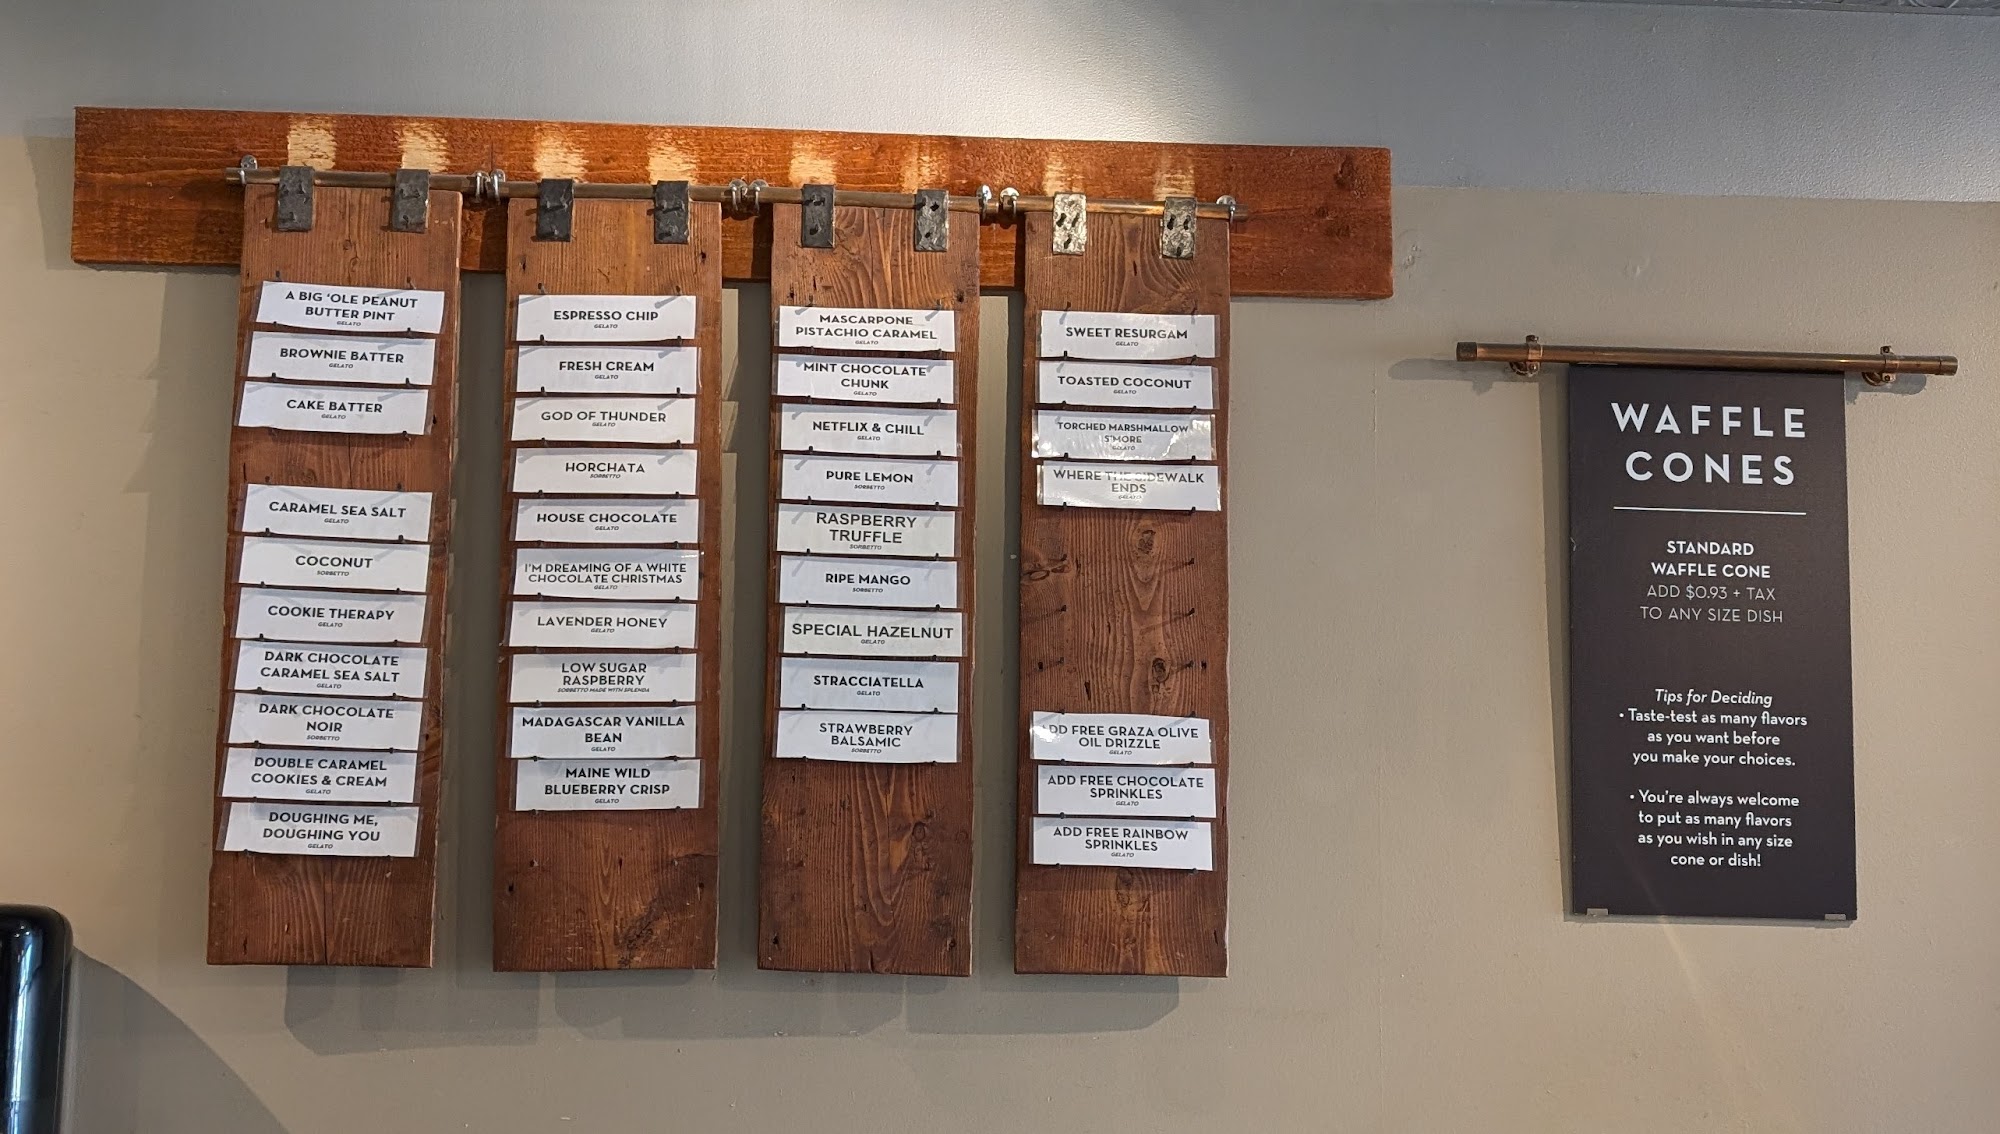 A BIG ‘OLE PEANUT
BUTTER PINT
GELATO
BROWNIE BATTER
GELATO
CAKE BATTER
GELATO
CARAMEL SEA SALT
GELATO
COCONUT
SORBETTO
COOKIE THERAPY
GELATO
DARK CHOCOLATE
CARAMEL SEA SALT
GELATO
DARK CHOCOLATE
NOIR
SORBETTO
DOUBLE CARAMEL
COOKIES & CREAM
GELATO
DOUGHING ME,
DOUGHING YOU
GELATO
ESPRESSO CHIP
GELATO
FRESH CREAM
GELATO
GOD OF THUNDER
GELATO
HORCHATA
SORBETTO
HOUSE CHOCOLATE
GELATO
I'M DREAMING OF A WHITE
CHOCOLATE CHRISTMAS
GELATO
LAVENDER HONEY
GELATO
LOW SUGAR
RASPBERRY
SORBETTO MADE WITH SPLENDA
MADAGASCAR VANILLA
BEAN
GELATO
MAINE WILD
BLUEBERRY CRISP
GELATO
MASCARPONE
PISTACHIO CARAMEL
GELATO
MINT CHOCOLATE
CHUNK
GELATO
NETFLIX & CHILL
GELATO
PURE LEMON
SORBETTO
RASPBERRY
TRUFFLE
SORBETTO
RIPE MANGO
SORBETTO
SPECIAL HAZELNUT
GELATO
STRACCIATELLA
GELATO
STRAWBERRY
BALSAMIC
SORBETTO
SWEET RESURGAM
GELATO
TOASTED COCONUT
GELATO
TORCHED MARSHMALLOW
S'MORE
GELATO
WHERE THE SIDEWALK
ENDS
GELATO
ADD FREE GRAZA OLIVE
OIL DRIZZLE
GELATO
ADD FREE CHOCOLATE
SPRINKLES
GELATO
ADD FREE RAINBOW
SPRINKLES
GELATO
WAFFLE
CONES
STANDARD
WAFFLE CONE
ADD $0.93 + TAX
TO ANY SIZE DISH
Tips for Deciding
• Taste-test as many flavors
as you want before
you make your choices.
• You're always welcome
to put as many flavors
as you wish in any size
cone or dish!